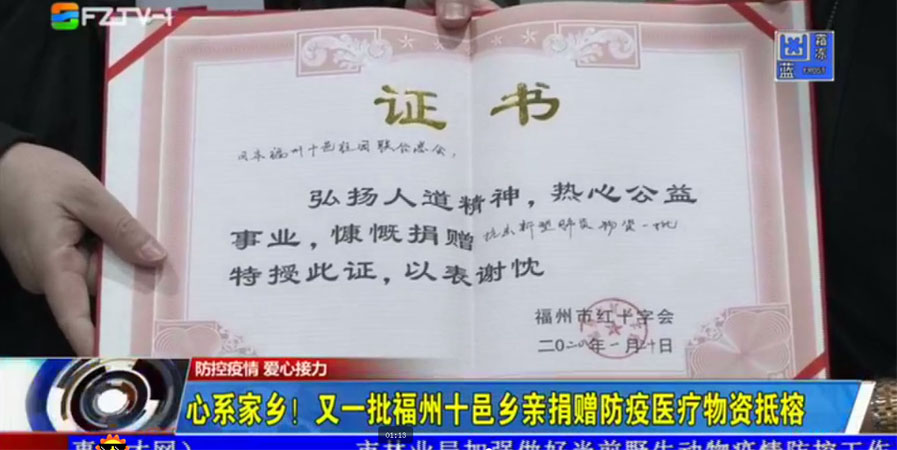 FZTV-1
霜冻
蓝
FROST
证书
日本福州十邑社团联合总会，
弘扬人道精神，热心公益
事业，慷慨捐赠抗击新型肺炎物资一批
特授此证，以表谢忱
福州市红十字会
二〇二〇年一月二十日
防控疫情 爱心接力
心系家乡！又一批福州十邑乡亲捐赠防疫医疗物资抵榕
01:13
市林业局加强做好当前野生动物疫情防控工作